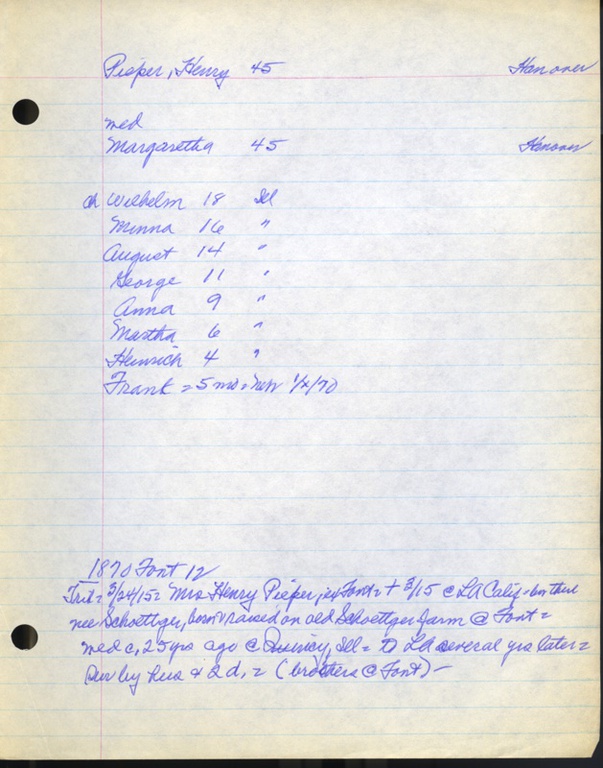 Pieper, Henry 45 Hanover
med
Margaretha 45 Hanover
ch Wilhelm 18 Ill
Minna 16 "
August 14 "
George 11 "
Anna 9 "
Martha 6 "
Heinrich 4 "
Frank = 5 mo = 1/x/70
1870 Font 12
Trib = 3/24/15 = Mrs Henry Pieper, ex Font = + 3/15 @ LA Calif =
nee Schoettger, born & raised on old Schoettger farm @ Font =
med c, 25 yrs ago @ Quincy, Ill = to LA several yrs later =
Sur by hus & 2 d, = (brothers @ Font) -